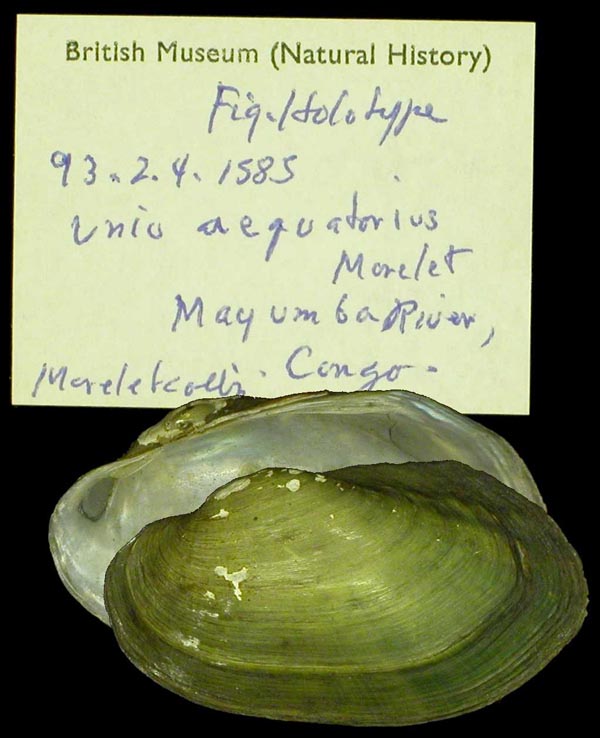 British Museum (Natural History)
Fig. Holotype
93.2.4.1585
Unio aequatorius
Morelet
Mayumba River,
Morelet coll'n. Congo.